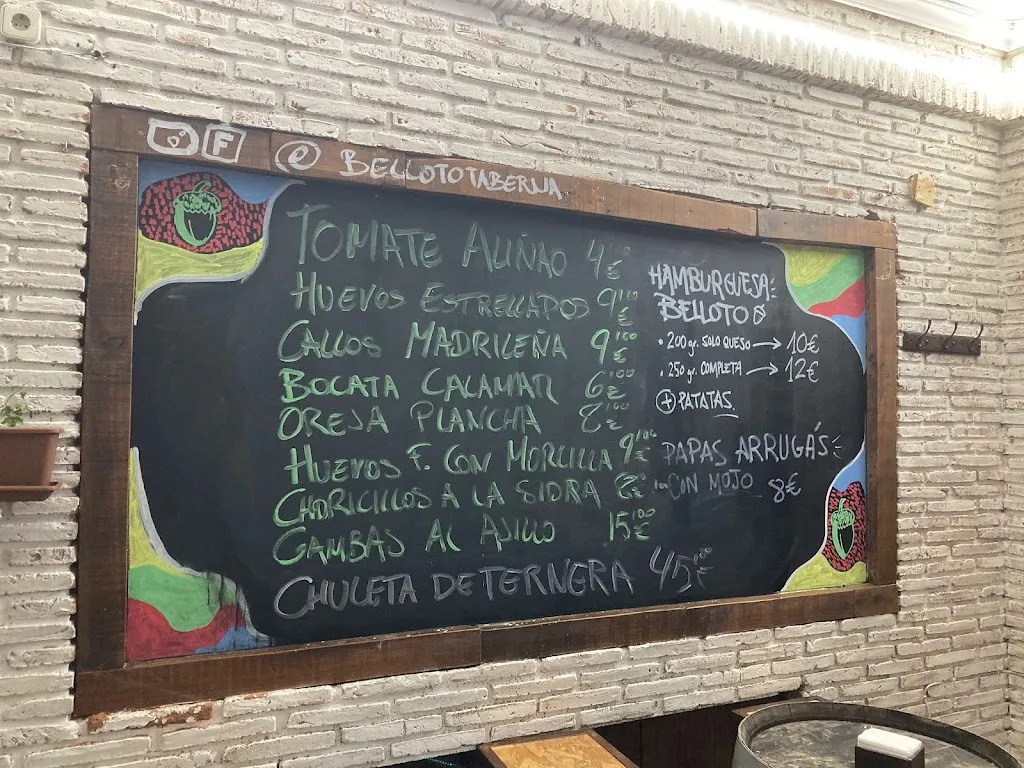 F @ BELLOTOTABERNA
TOMATE ALIÑAO 4'00€
HUEVOS ESTRELLADOS 9'00€
CALLOS MADRILEÑA 9'00€
BOCATA CALAMAR 6'00€
OREJA PLANCHA 8'00€
HUEVOS F. CON MORCILLA 9'00€
CHORICILLOS A LA SIDRA 8'00€
GAMBAS AL AJILLO 15'00€
CHULETA DE TERNERA 45'00€
HAMBURGUESA
BELLOTO
• 200gr. SOLO QUESO → 10€
• 250 gr. COMPLETA → 12€
+ PATATAS
PAPAS ARRUGÁS
CON MOJO 8€